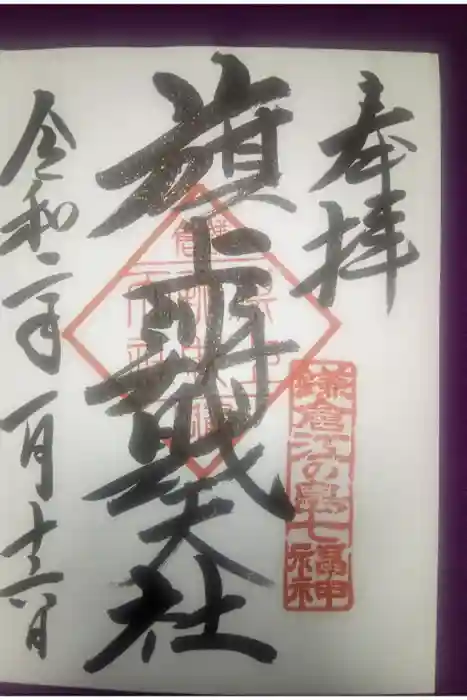 奉拝
鎌倉江の島七福神
旗上弁財天社
令和二年一月十六日